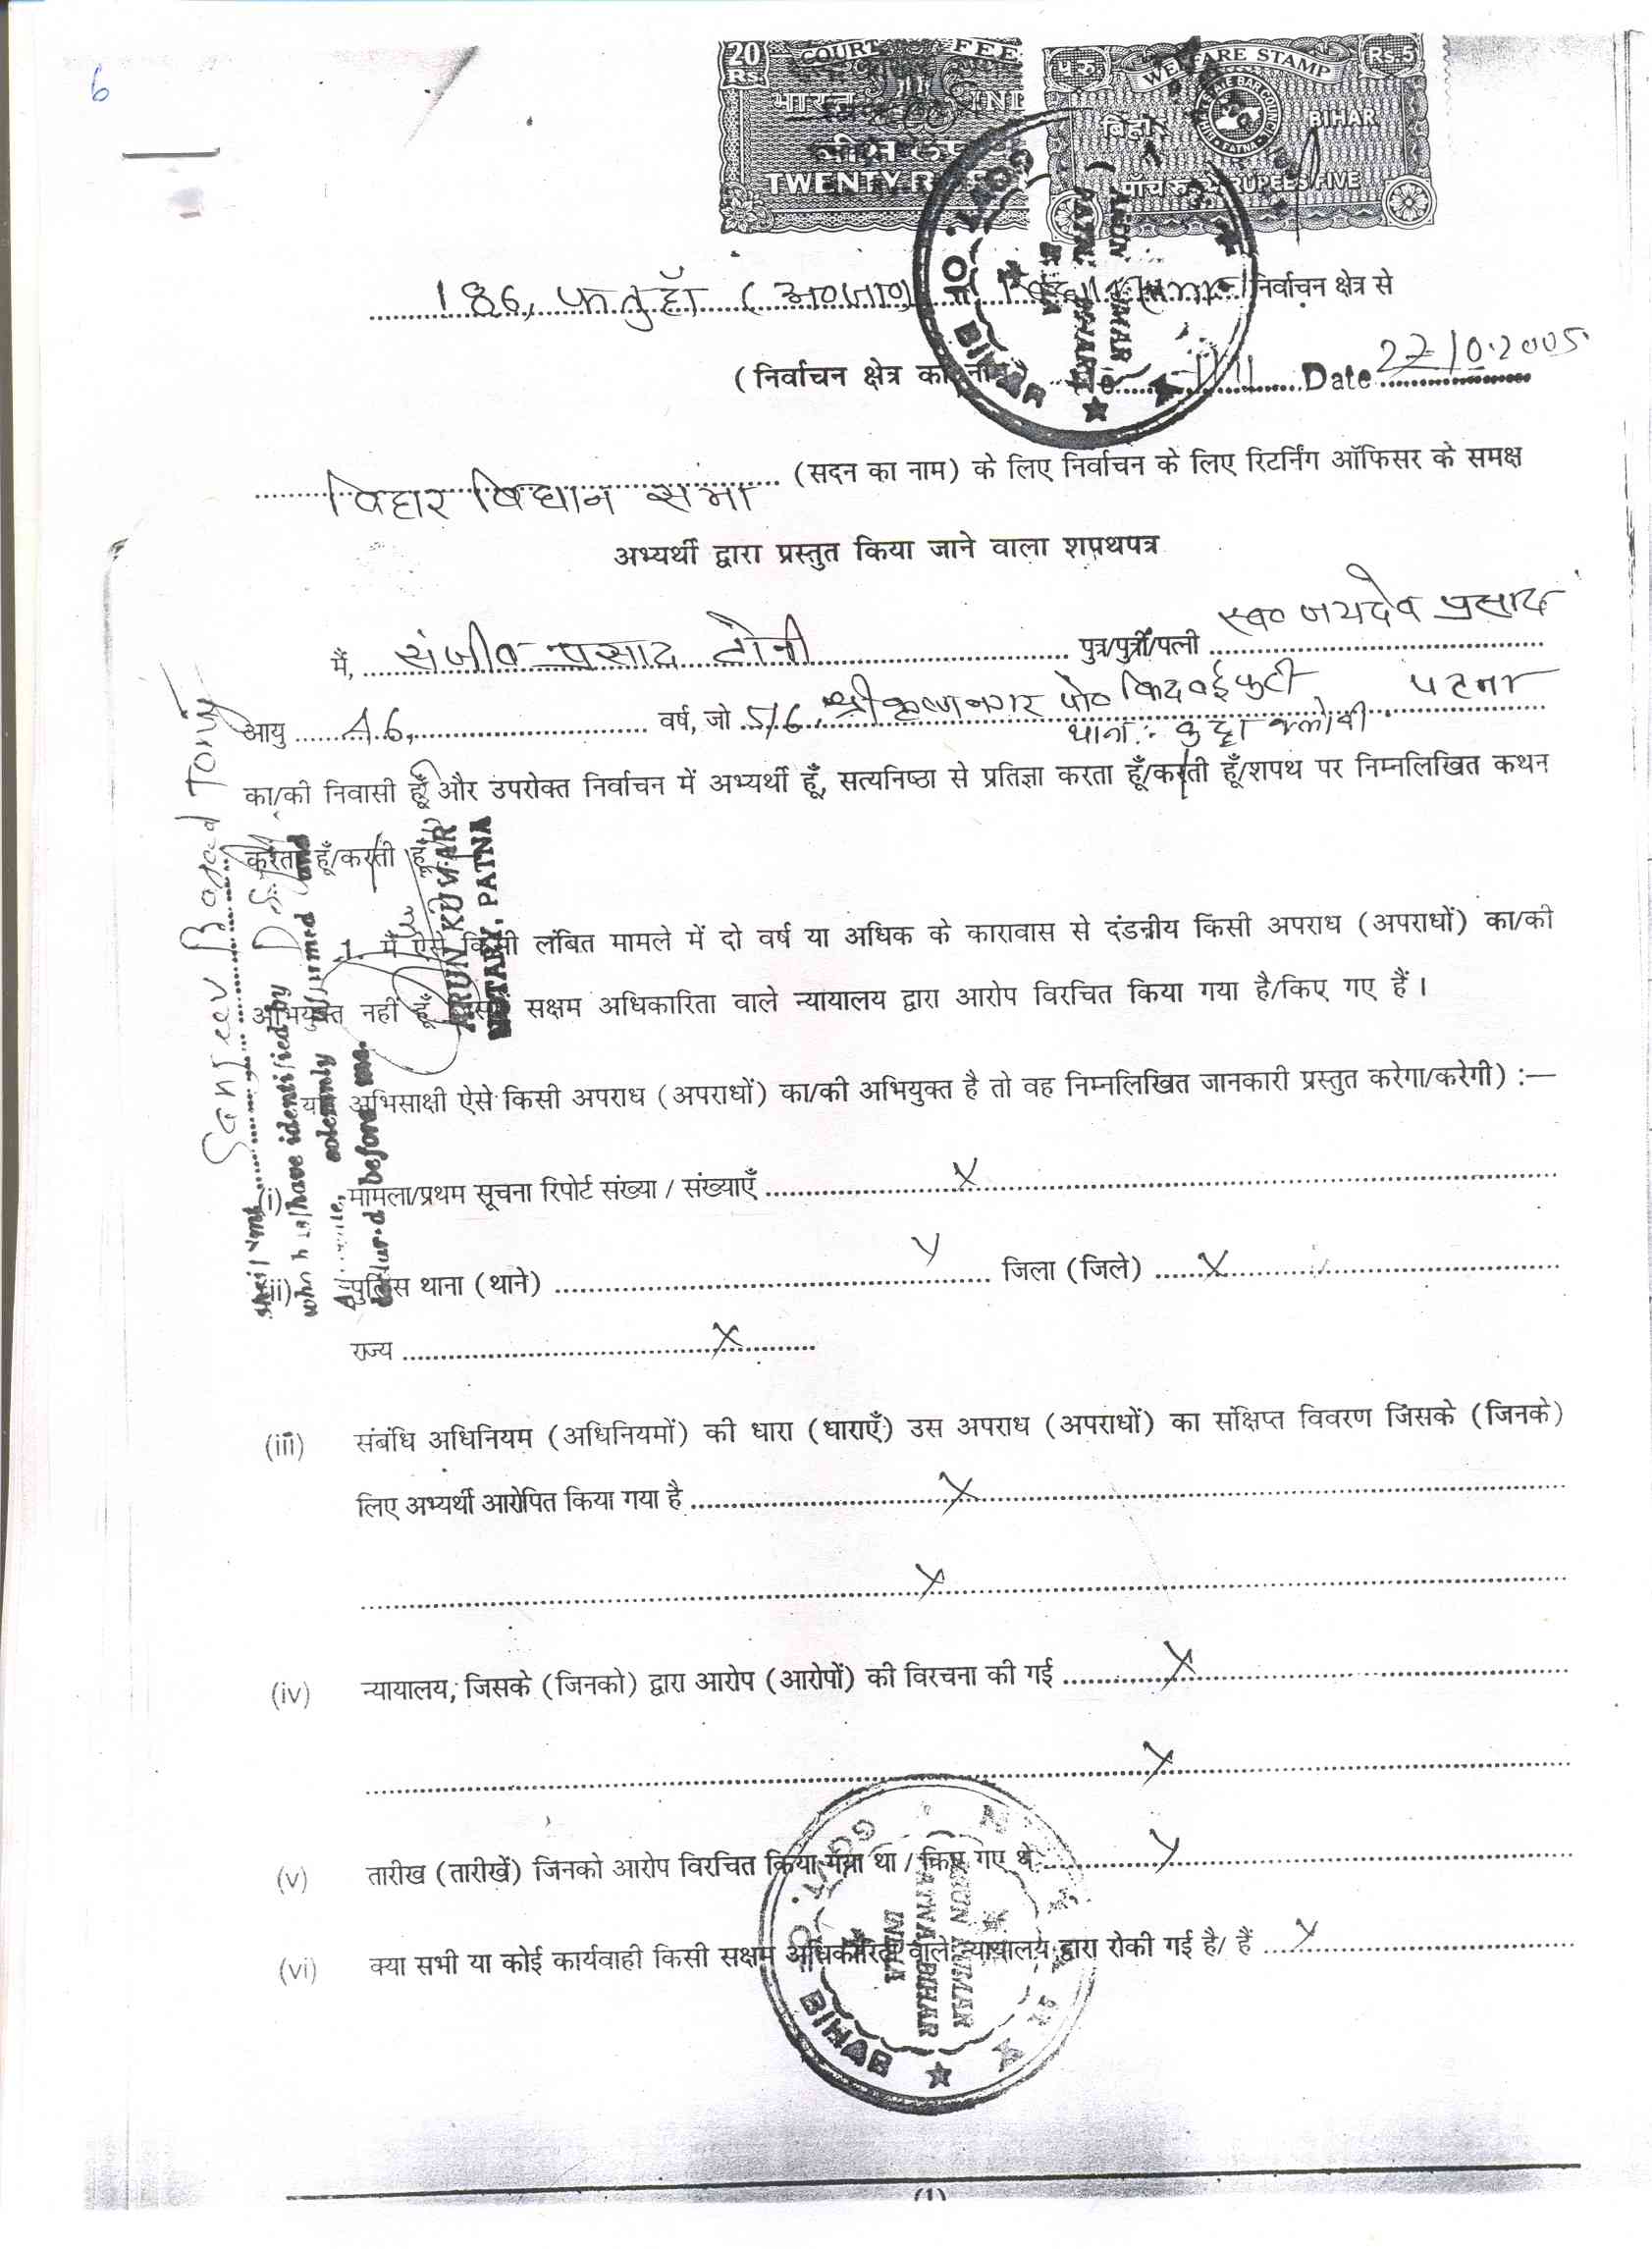 6
20 Rs. COURT FEE
भारत INDI
बीस रुप
TWENTY R
५ रु. WELFARE STAMP Rs.5
BIHAR STATE BAR COUNCIL PATNA
बिहार BIHAR
पाँच रु. RUPEES FIVE
186, फतुहाँ (अ०जा०) विधान सभा निर्वाचन क्षेत्र से
(निर्वाचन क्षेत्र का नाम) Date 27/10.2005.
बिहार विधान सभा (सदन का नाम) के लिए निर्वाचन के लिए रिटर्निंग ऑफिसर के समक्ष
अभ्यर्थी द्वारा प्रस्तुत किया जाने वाला शपथपत्र
मैं, संजीव प्रसाद टोनी पुत्र/पुत्री/पत्नी स्व० जयदेव प्रसाद
आयु 46, वर्ष, जो 5/6, श्रीकृष्णनगर पो० किदवईपुरी पटना
थाना:-
का/की निवासी हूँ और उपरोक्त निर्वाचन में अभ्यर्थी हूँ, सत्यनिष्ठा से प्रतिज्ञा करता हूँ/करती हूँ/शपथ पर निम्नलिखित कथन
करता हूँ/करती हूँ
1. मैं ऐसे किसी लंबित मामले में दो वर्ष या अधिक के कारावास से दंडनीय किसी अपराध (अपराधों) का/की
अभियुक्त नहीं हूँ सक्षम अधिकारिता वाले न्यायालय द्वारा आरोप विरचित किया गया है/किए गए हैं।
अभिसाक्षी ऐसे किसी अपराध (अपराधों) का/की अभियुक्त है तो वह निम्नलिखित जानकारी प्रस्तुत करेगा/करेगी) :—
(i) मामला/प्रथम सूचना रिपोर्ट संख्या / संख्याएँ X
(ii) पुलिस थाना (थाने) X जिला (जिले) X
राज्य X
(iii) संबंधि अधिनियम (अधिनियमों) की धारा (धाराएँ) उस अपराध (अपराधों) का संक्षिप्त विवरण जिसके (जिनके)
लिए अभ्यर्थी आरोपित किया गया है X
X
(iv) न्यायालय, जिसके (जिनको) द्वारा आरोप (आरोपों) की विरचना की गई X
X
(v) तारीख (तारीखें) जिनको आरोप विरचित किया गया था / किए गए थे X
(vi) क्या सभी या कोई कार्यवाही किसी सक्षम अधिकारिता वाले न्यायालय द्वारा रोकी गई है/ हैं X
(1)
Sanjeev Prasad Toni
who have identified by
solemnly affirmed and
before me.
ARUN KUMAR
NOTARY, PATNA
ARUN KUMAR
PATNA BIHAR
INDIA
GOVT. OF BIHAR
ARUN KUMAR
PATNA BIHAR
INDIA
BIHAR